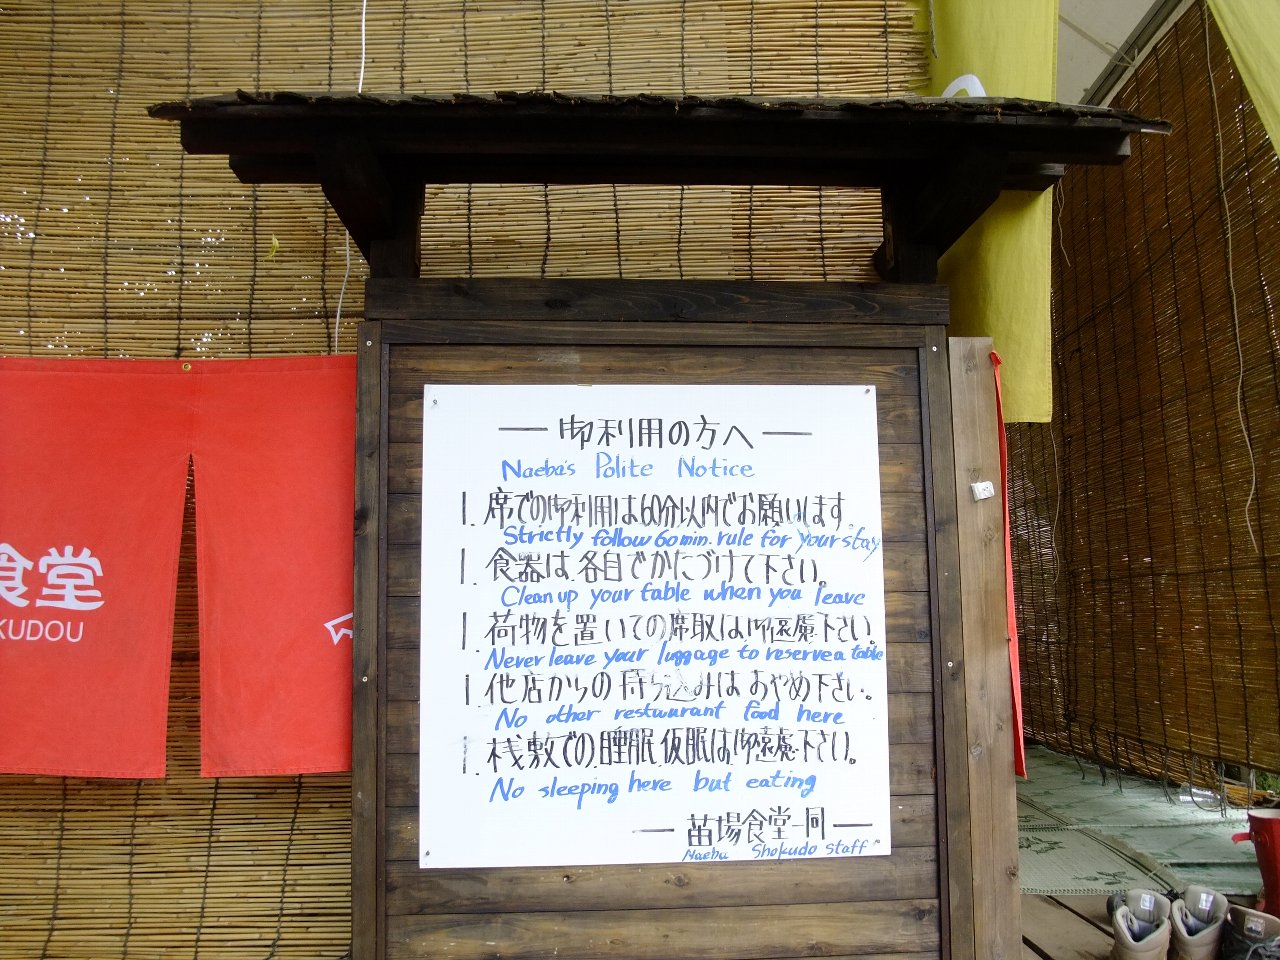 食堂
KUDOU
― 御利用の方へ ―
Naeba's Polite Notice
1. 席での御利用は60分以内でお願いします
Strictly follow 60 min. rule for your stay
1. 食器は各自でかたづけて下さい。
Clean up your table when you leave
1. 荷物を置いての席取は御遠慮下さい。
Never leave your luggage to reserve a table
1. 他店からの持ち込みはおやめ下さい。
No other restuurant food here
1. 桟敷での睡眠仮眠は御遠慮下さい。
No sleeping here but eating
― 苗場食堂一同 ―
Naeba Shokudo staff